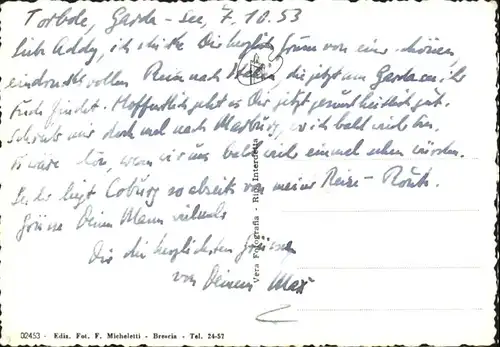 Torbole, Garda-see, 7.10.53
Liebe Addy, ich schicke Dir herzlich Grüsse von einer schönen,
eindrucksvollen Reise nach Italien, die jetzt am Gardasee ihr
Ende findet. Hoffentlich geht es Dir jetzt gesundheitlich gut.
Schreib mir doch mal nach Marburg, wo ich bald wieder bin.
Es wäre schön, wenn wir uns bald wieder einmal sehen würden.
Leider liegt Coburg so abseits von meiner Reise-Route.
Grüsse Deinen Mann vielmals
Dir die herzlichsten Grüsse
von Deinem Max
Vera Fotografia - Rip. Interdetta
02453 - Ediz. Fot. F. Micheletti - Brescia - Tel. 24-57